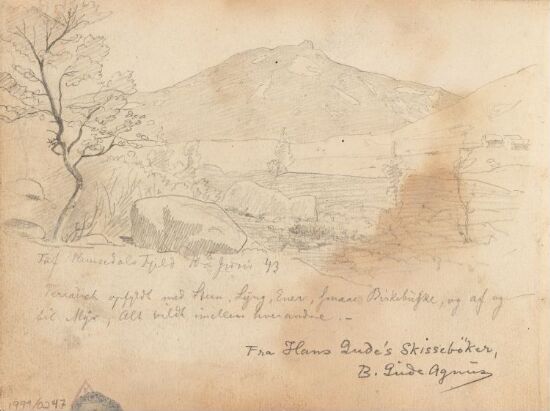 Hemsedals Fjeld 10de Juni 43
Terrainet opfyldt med Steen, Lyng, Ener, smaae Birkebuske, og af og
til Myr, Alt vildt imellem hverandre. –
Fra Hans Gude's Skissebøker,
B. Gude Agnus
1999/0247